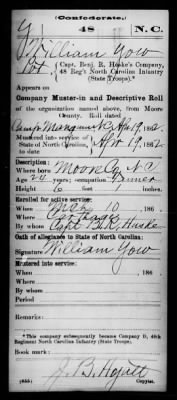 (Confederate.)
G 48 N.C.
William Gow
Pvt, Capt. Benj. R. Huske's Company,
48 Reg't North Carolina Infantry
(State Troops).*
Appears on
Company Muster-in and Descriptive Roll
of the organization named above, from Moore
County. Roll dated
Camp Mangum N.C. Apl 19, 1862.
Mustered into service of
State of North Carolina, Apl 19, 1862.
Description:
Where born Moore Co, N.C.
Age years; occupation Farmer
Height 6 feet 1 inches.
Enrolled for active service:
When 10, 186
Where Carthage
By whom Capt. B.R. Huske
Oath of allegiance to State of North Carolina:
Signature William Gow
Mustered into service:
When , 186 .
Where
By whom
Period
Remarks:
*This company subsequently became Company D, 48th
Regiment North Carolina Infantry (State Troops).
Book mark:
J. B.
(655) Copyist.